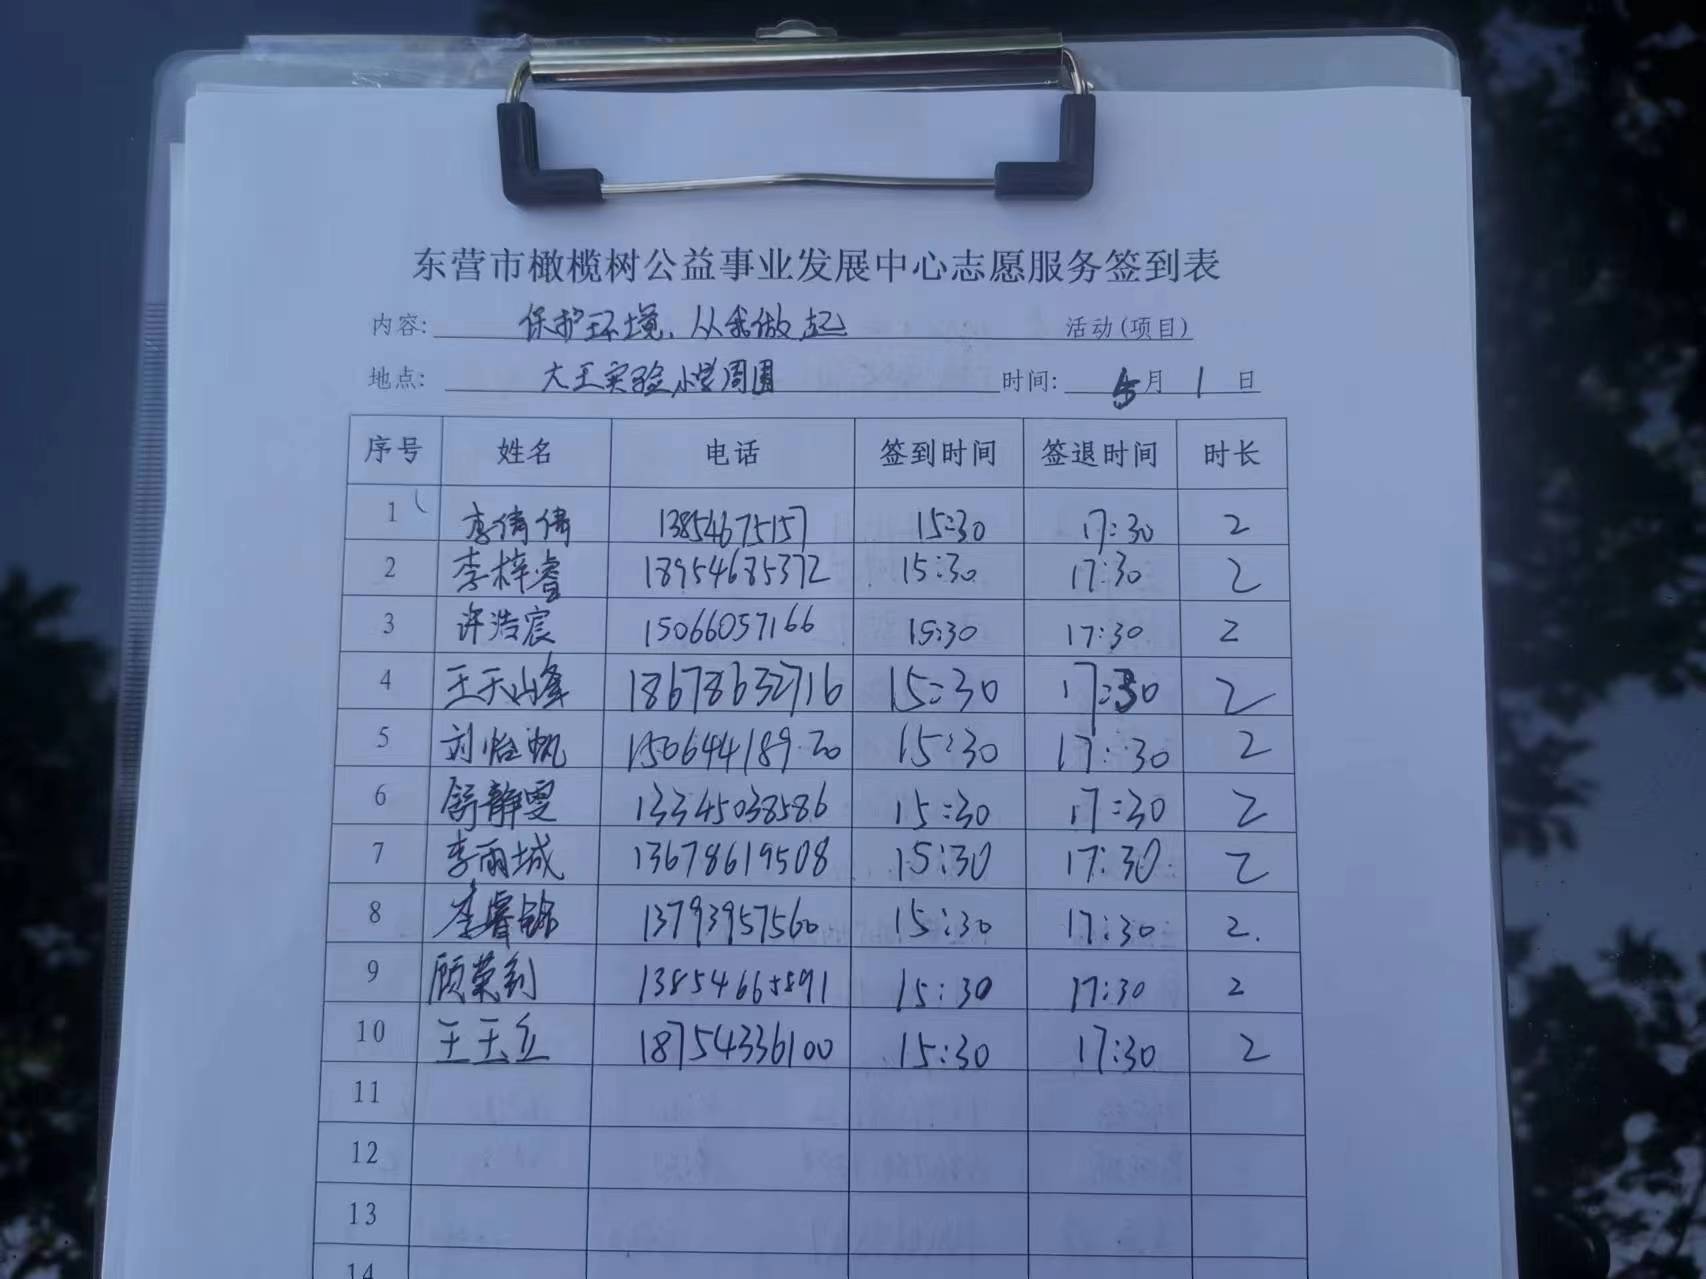 东营市橄榄树公益事业发展中心志愿服务签到表
内容: 保护环境、从我做起 活动(项目)
地点: 大王实验小学周围 时间: 5月1日
序号 姓名 电话 签到时间 签退时间 时长
1 李倩倩 13854675157 15:30 17:30 2
2 李梓睿 18954685372 15:30 17:30 2
3 许浩宸 15066057166 15:30 17:30 2
4 王天峰 18678632716 15:30 17:30 2
5 刘怡帆 15064418920 15:30 17:30 2
6 舒静雯 13345038586 15:30 17:30 2
7 李雨城 13678619508 15:30 17:30 2
8 李睿锦 13793957560 15:30 17:30 2.
9 顾荣钊 13854665891 15:30 17:30 2
10 王玉立 18754336100 15:30 17:30 2
11
12
13
14